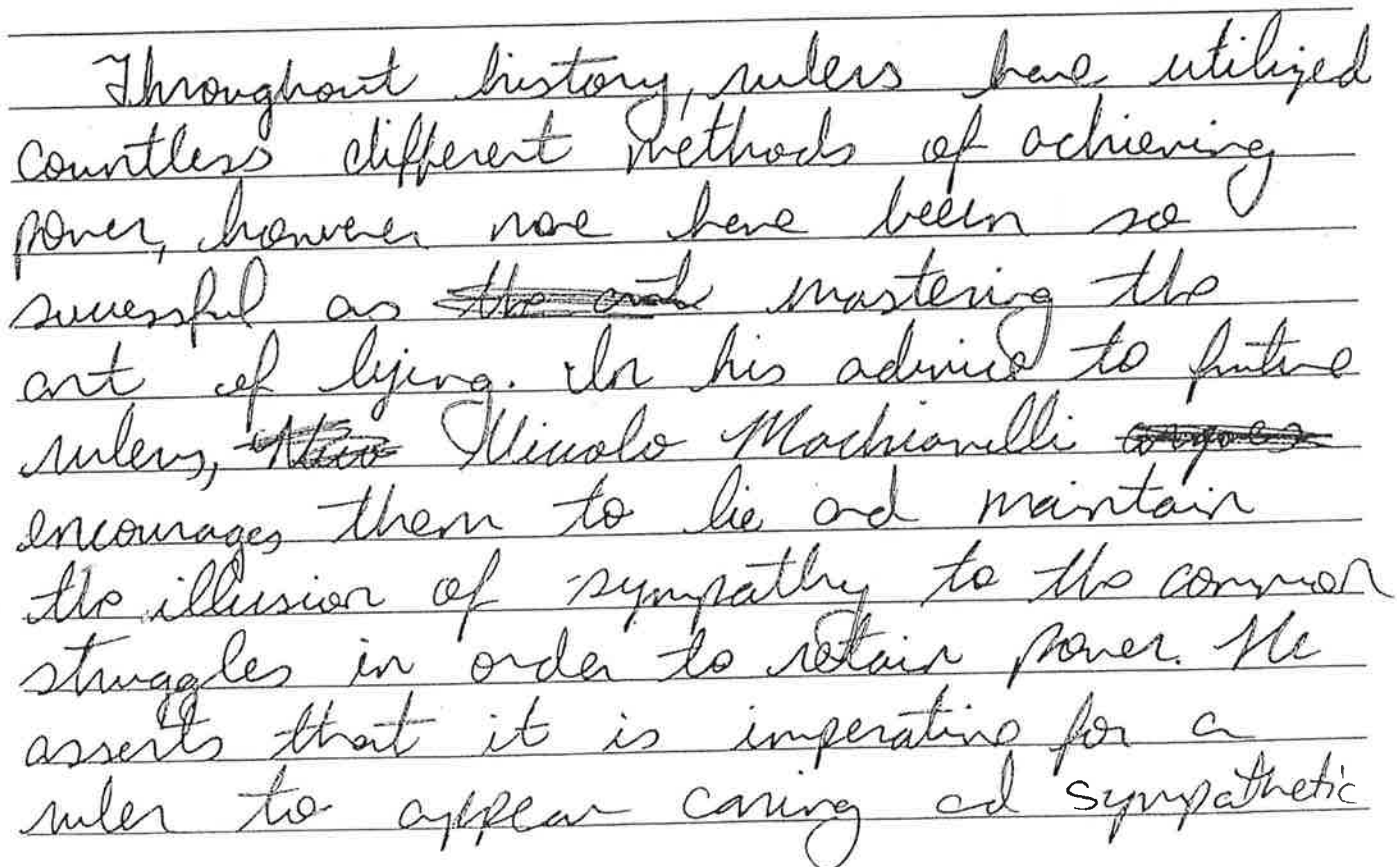 Throughout history, rulers have utilized
countless different methods of achieving
power, however none have been so
successful as mastering the
art of lying. In his advice to future
rulers, Niccolo Machiavelli
encourages them to lie and maintain
the illusion of sympathy to the common
struggles in order to retain power. He
asserts that it is imperative for a
ruler to appear caring ad sympathetic